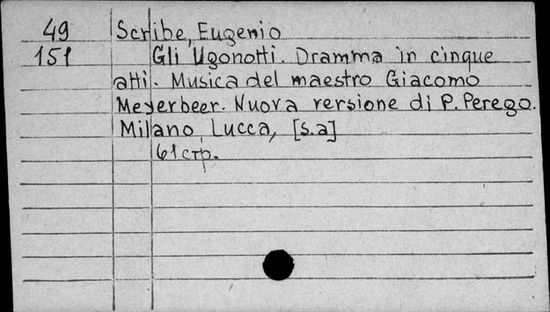 49 Scribe, Eugenio
151 Gli Ugonotti. Dramma in cinque
atti. Musica del maestro Giacomo
Meyerbeer. Nuova versione di P. Perego.
Milano, Lucca, [s.a]
61 стр.